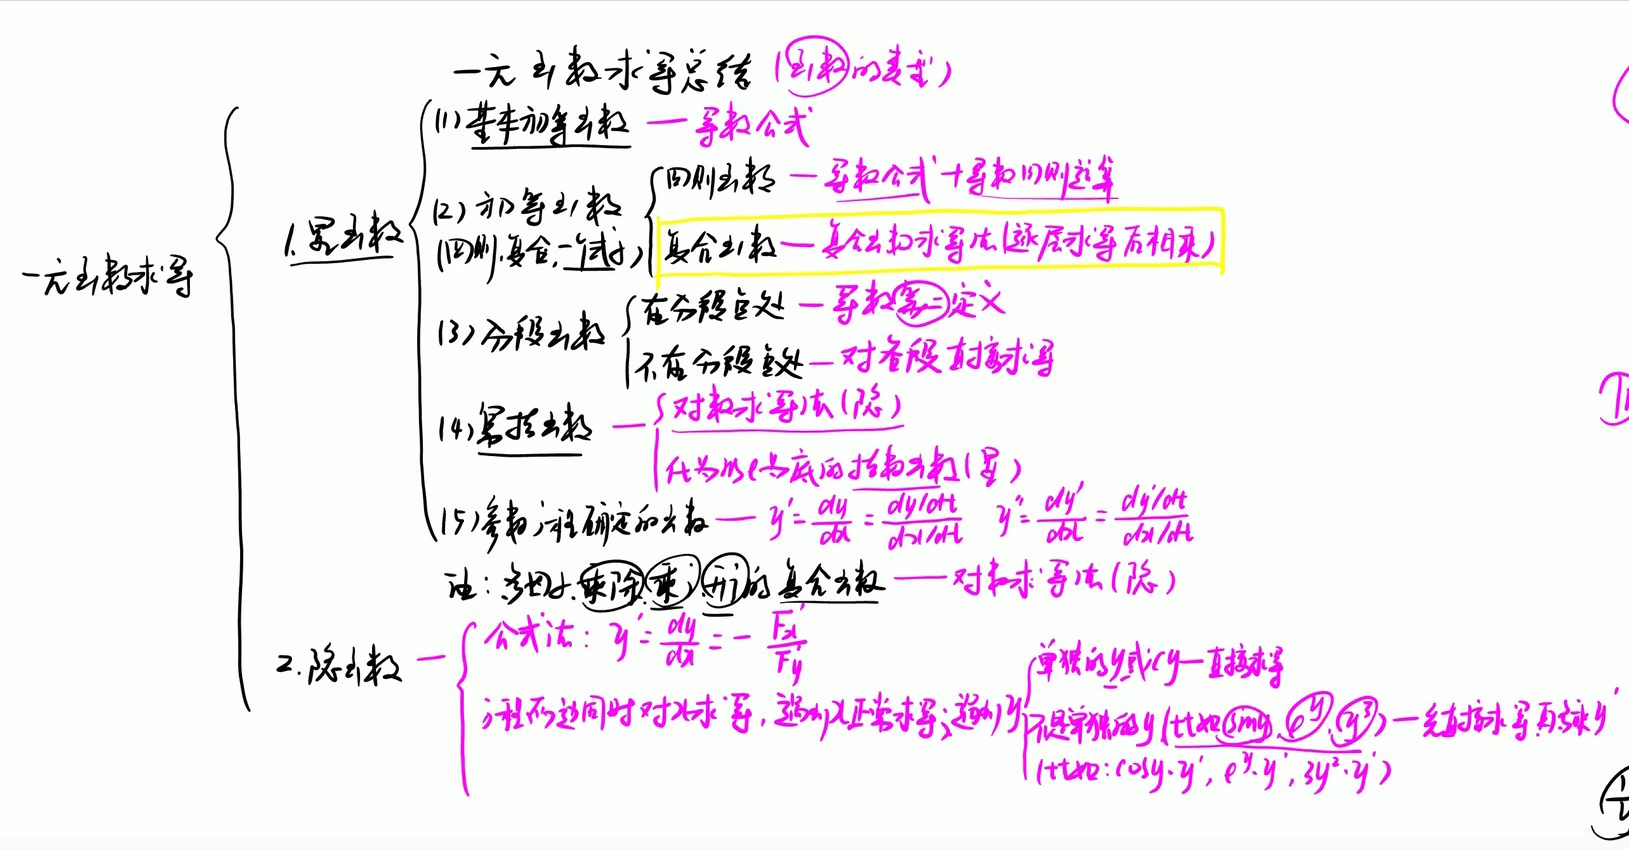 一元函数求导总结(函数的类型)
一元函数求导
1.显函数
(1)基本初等函数 — 导数公式
(2)初等函数
(四则,复合,一个式子)
四则函数 — 导数公式+导数四则运算
复合函数 — 复合函数求导法(逐层求导后相乘)
(3)分段函数
在分段点处 — 导数第二定义
不在分段点处 — 对各段直接求导
(4)幂指函数 —
对数求导法(隐)
化为以e为底的指数函数(显)
(5)参数方程确定的函数 — y'=dy/dx=(dy/dt)/(dx/dt) y''=dy'/dx=(dy'/dt)/(dx/dt)
注:多因子乘除,乘方,开方的复合函数 — 对数求导法(隐)
2.隐函数 —
公式法: y'=dy/dx=-F'x/F'y
方程两边同时对x求导,遇到x正常求导;遇到y
单独的y或cy—直接求导
不是单独的y(比如siny,e^y,y³)—先直接求导,再乘y'
(比如:cosy·y',e^y·y',3y²·y')